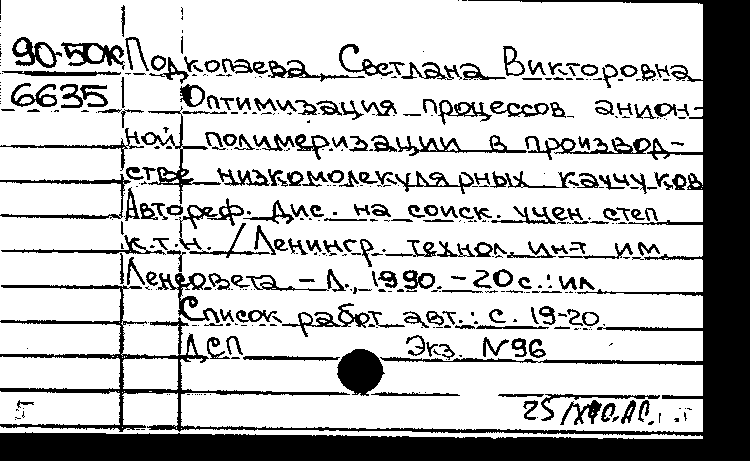 90-50К Подкопаева, Светлана Викторовна
6635 Оптимизация процессов анион-
ной полимеризации в производ-
стве низкомолекулярных каучуков
Автореф. дис. на соиск. учен. степ.
к.т.н. / Ленингр. технол. ин-т им.
Ленсовета. - Л., 1990. - 20 с.: ил.
Список работ авт.: с. 19-20.
ДСП Экз. №96
5